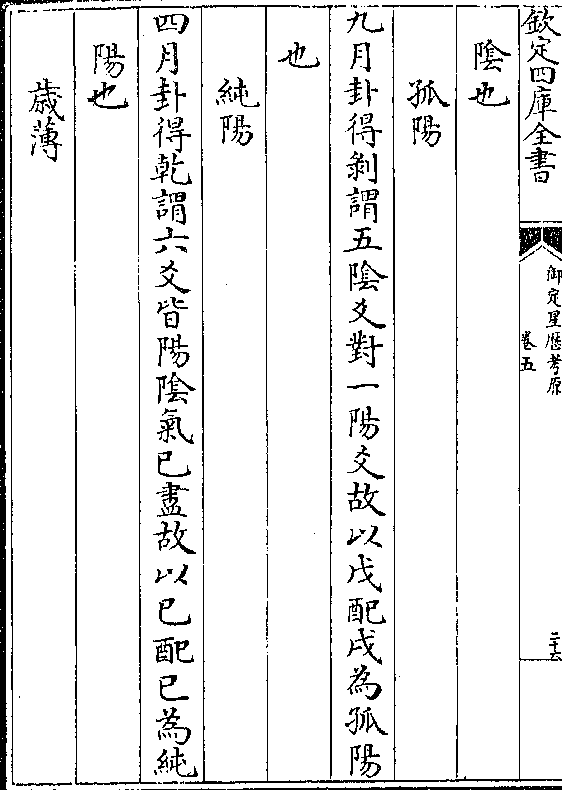 欽定四庫全書
御定星歷考原
卷五
二十六
陰也
孤陽
九月卦得剝謂五陰爻對一陽爻故以戊配戌為孤陽
也
純陽
四月卦得乾謂六爻皆陽陰氣已盡故以已配已為純
陽也
歲薄